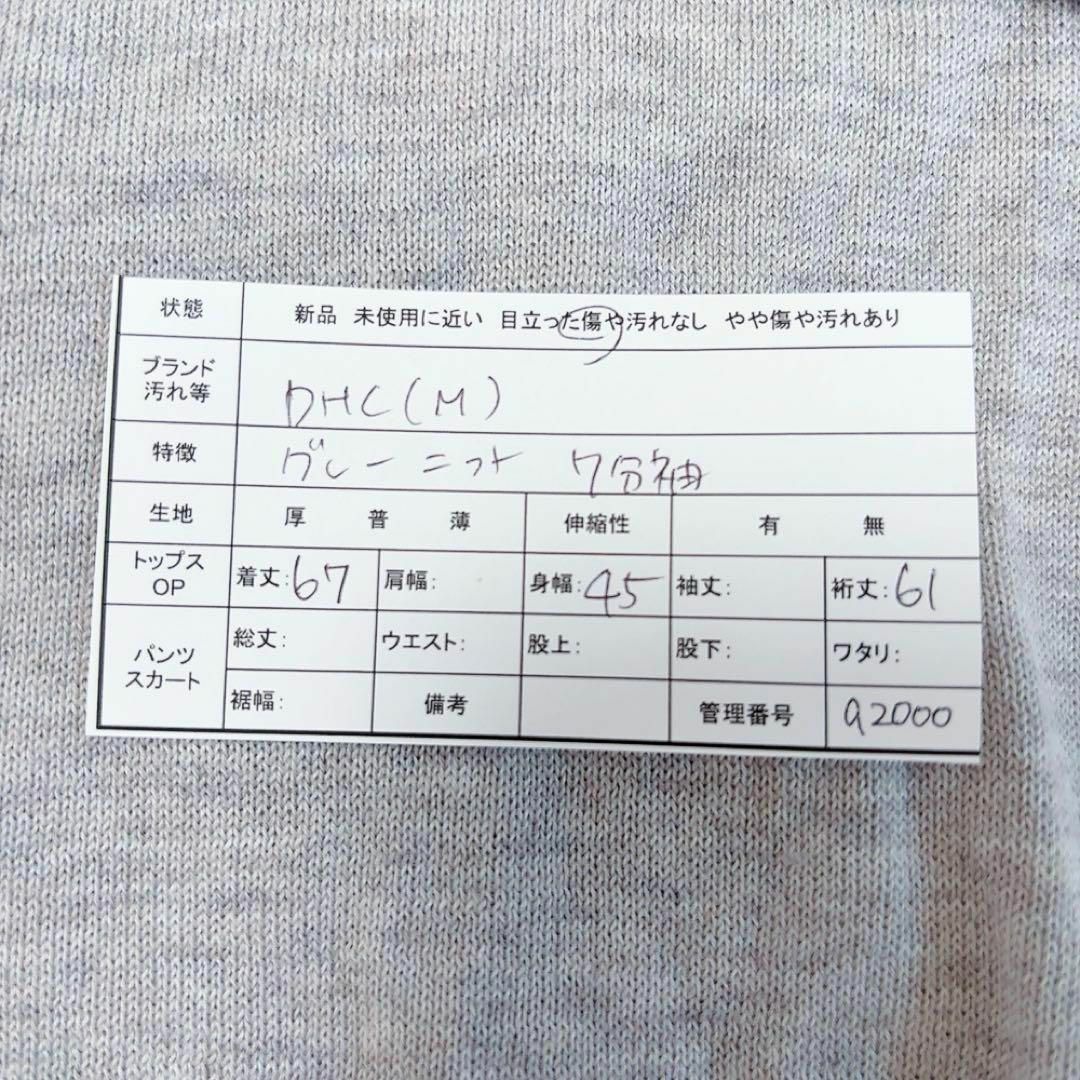 状態 新品 未使用に近い 目立った傷や汚れなし やや傷や汚れあり
ブランド
汚れ等 DHC(M)
特徴 グレーニット 7分袖
生地 厚 普 薄 伸縮性 有 無
トップス
OP 着丈:67 肩幅: 身幅:45 袖丈: 裄丈:61
パンツ
スカート 総丈: ウエスト: 股上: 股下: ワタリ:
裾幅: 備考 管理番号 a2000